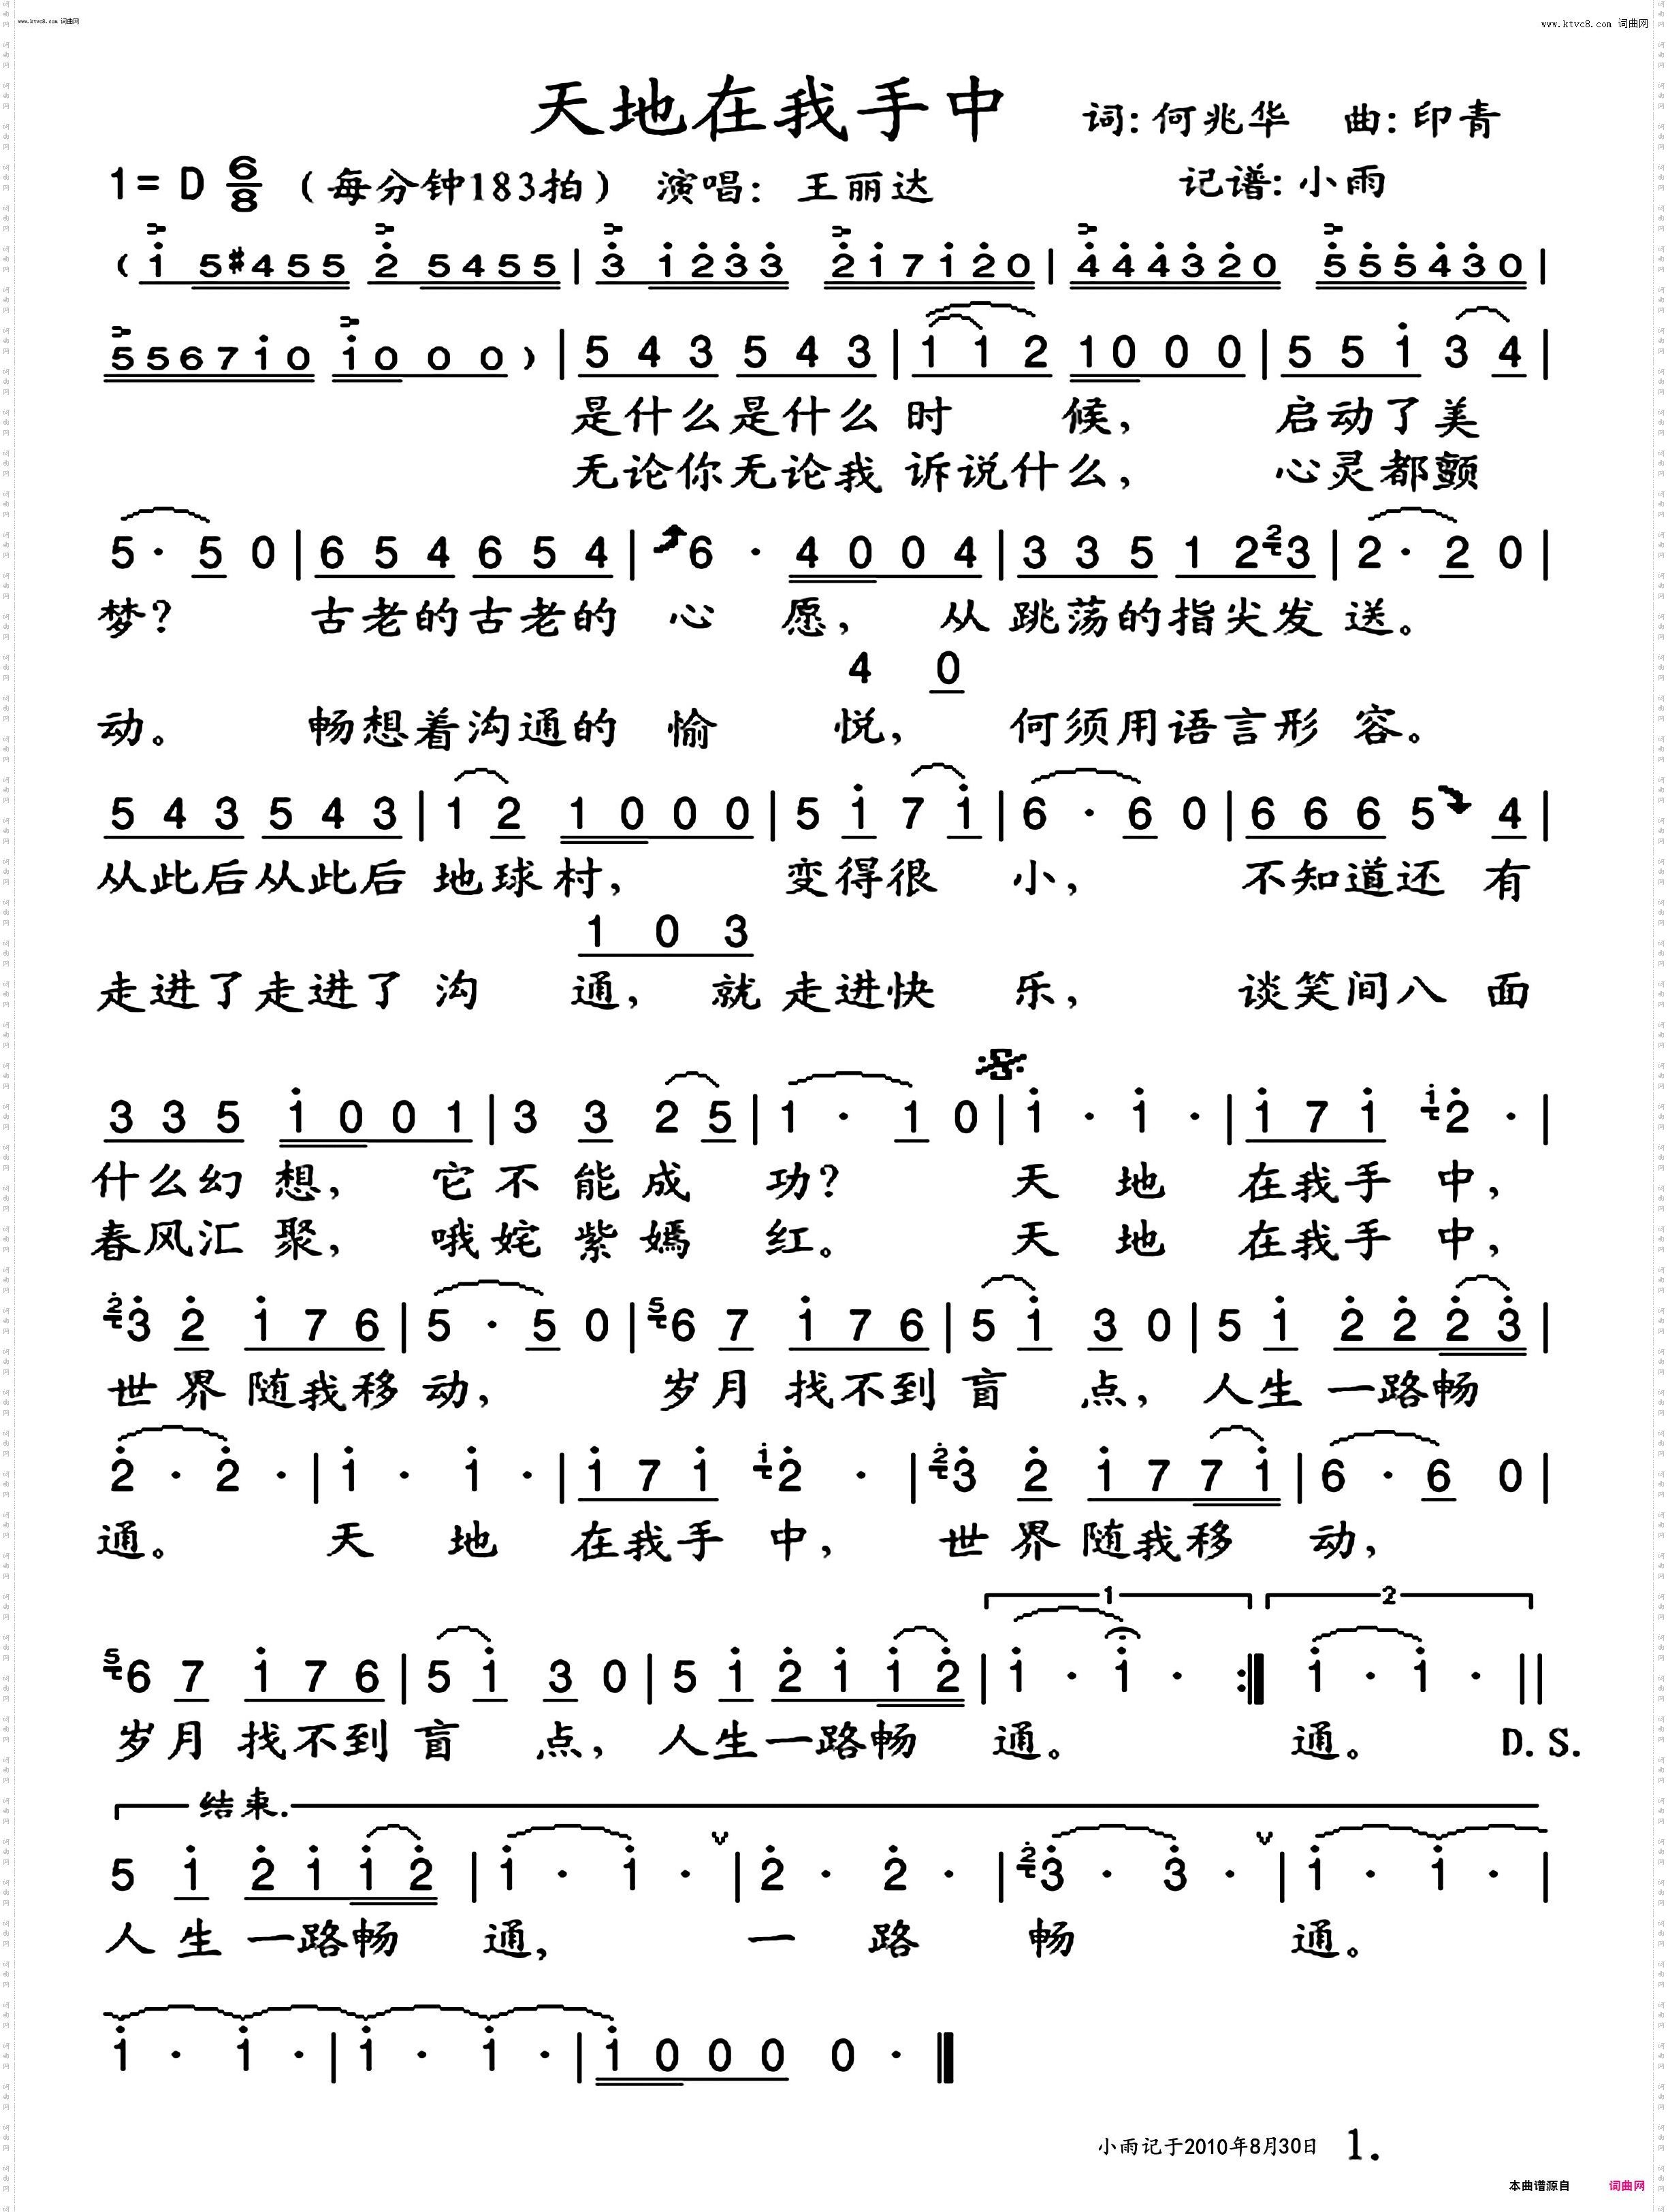 www.ktvc8.com 词曲网
www.ktvc8.com 词曲网
天地在我手中 词:何兆华 曲:印青
1=D 6/8 （每分钟183拍） 演唱：王丽达 记谱:小雨
( i 5 #4 5 5 2 5 4 5 5 | 3 1 2 3 3 2 1 7 1 2 0 | 4 4 4 3 2 0 5 5 5 4 3 0 |
5 5 6 7 1 0 1 0 0 0 ) | 5 4 3 5 4 3 | 1 1 2 1 0 0 0 | 5 5 1 3 4 |
是什么是什么 时 候， 启动了美
无论你无论我 诉说什么， 心灵都颤
5 · 5 0 | 6 5 4 6 5 4 | 6 · 4 0 0 4 | 3 3 5 1 2 2 3 | 2 · 2 0 |
梦？ 古老的古老的 心 愿， 从 跳荡的指尖发 送。
4 0
动。 畅想着沟通的 愉 悦， 何须用语言形 容。
5 4 3 5 4 3 | 1 2 1 0 0 0 | 5 1 7 1 | 6 · 6 0 | 6 6 6 5 4 |
从此后从此后 地球村， 变得很 小， 不知道还 有
1 0 3
走进了走进了 沟 通， 就 走进快 乐， 谈笑间八 面
3 3 5 1 0 0 1 | 3 3 2 5 | 1 · 1 0 | 1 · 1 · | 1 7 1 1 2 · |
什么幻 想， 它 不 能 成 功？ 天 地 在我手 中，
春风汇 聚， 哦姹 紫 嫣 红。 天 地 在我手 中，
2 3 2 1 7 6 | 5 · 5 0 | 5 6 7 1 7 6 | 5 1 3 0 | 5 1 2 2 2 3 |
世 界 随我移 动， 岁月 找不到 盲 点，人生 一路畅
2 · 2 · | 1 · 1 · | 1 7 1 1 2 · | 2 3 2 1 7 7 1 | 6 · 6 0 |
通。 天 地 在我手 中， 世 界 随我移 动，
1 2
5 6 7 1 7 6 | 5 1 3 0 | 5 1 2 1 1 2 | 1 · 1 · :| 1 · 1 · ||
岁月 找不到 盲 点， 人生一路畅 通。 通。 D.S.
结束.
5 1 2 1 1 2 | 1 · 1 · | 2 · 2 · | 2 3 · 3 · | 1 · 1 · |
人 生 一路畅 通， 一 路 畅 通。
1 · 1 · | 1 · 1 · | 1 0 0 0 0 · ||
小雨记于2010年8月30日 1.
本曲谱源自 词曲网